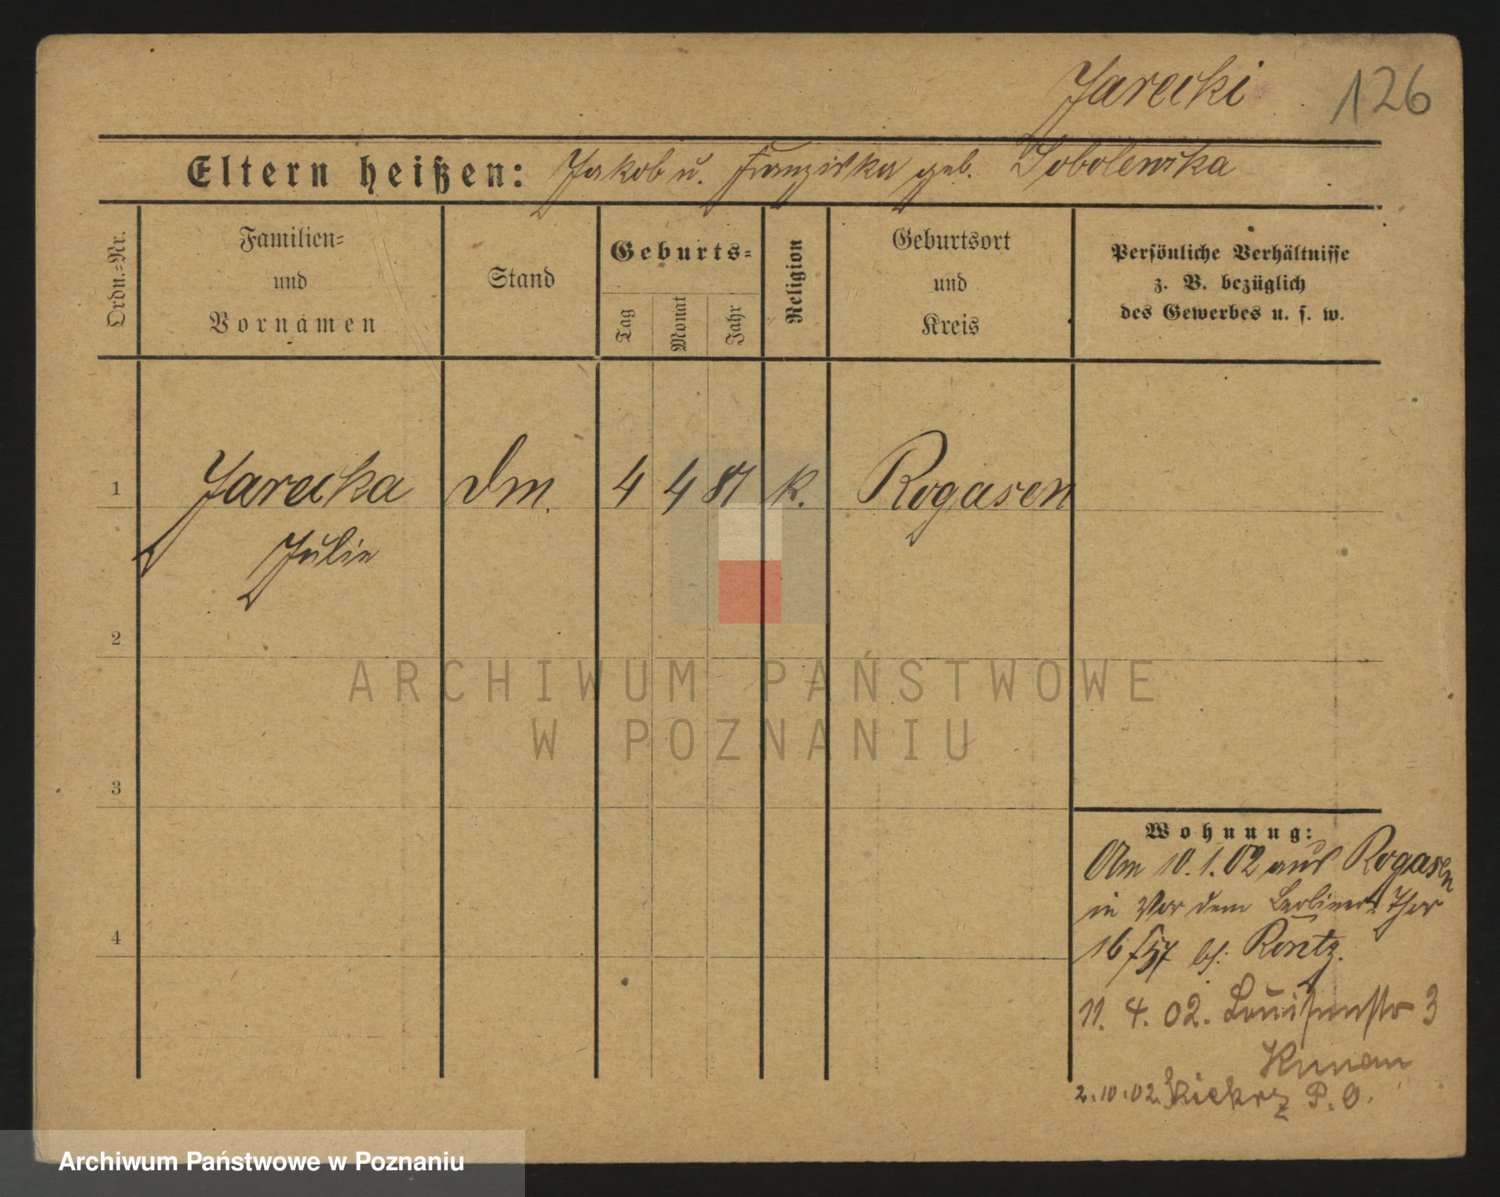 Jarecki
126
Eltern heißen: Jakob u. Franziska geb. Sobolewska
Ordn.=Nr.
Familien=
und
Vornamen
Stand
Geburts=
Tag
Monat
Jahr
Religion
Geburtsort
und
Kreis
Persönliche Verhältnisse
z. B. bezüglich
des Gewerbes u. s. w.
1
Jarecka
Julie
Dm.
4
4
81
k.
Rogasen
2
3
4
Wohnung:
Am 10.1.02 aus Rogasen
in Vor dem Berliner Thor
16 bei
11. 4. 02. Louisenstr 3
2.10.02. Kiekrz P. O.
ARCHIWUM PAŃSTWOWE
W POZNANIU
Archiwum Państwowe w Poznaniu